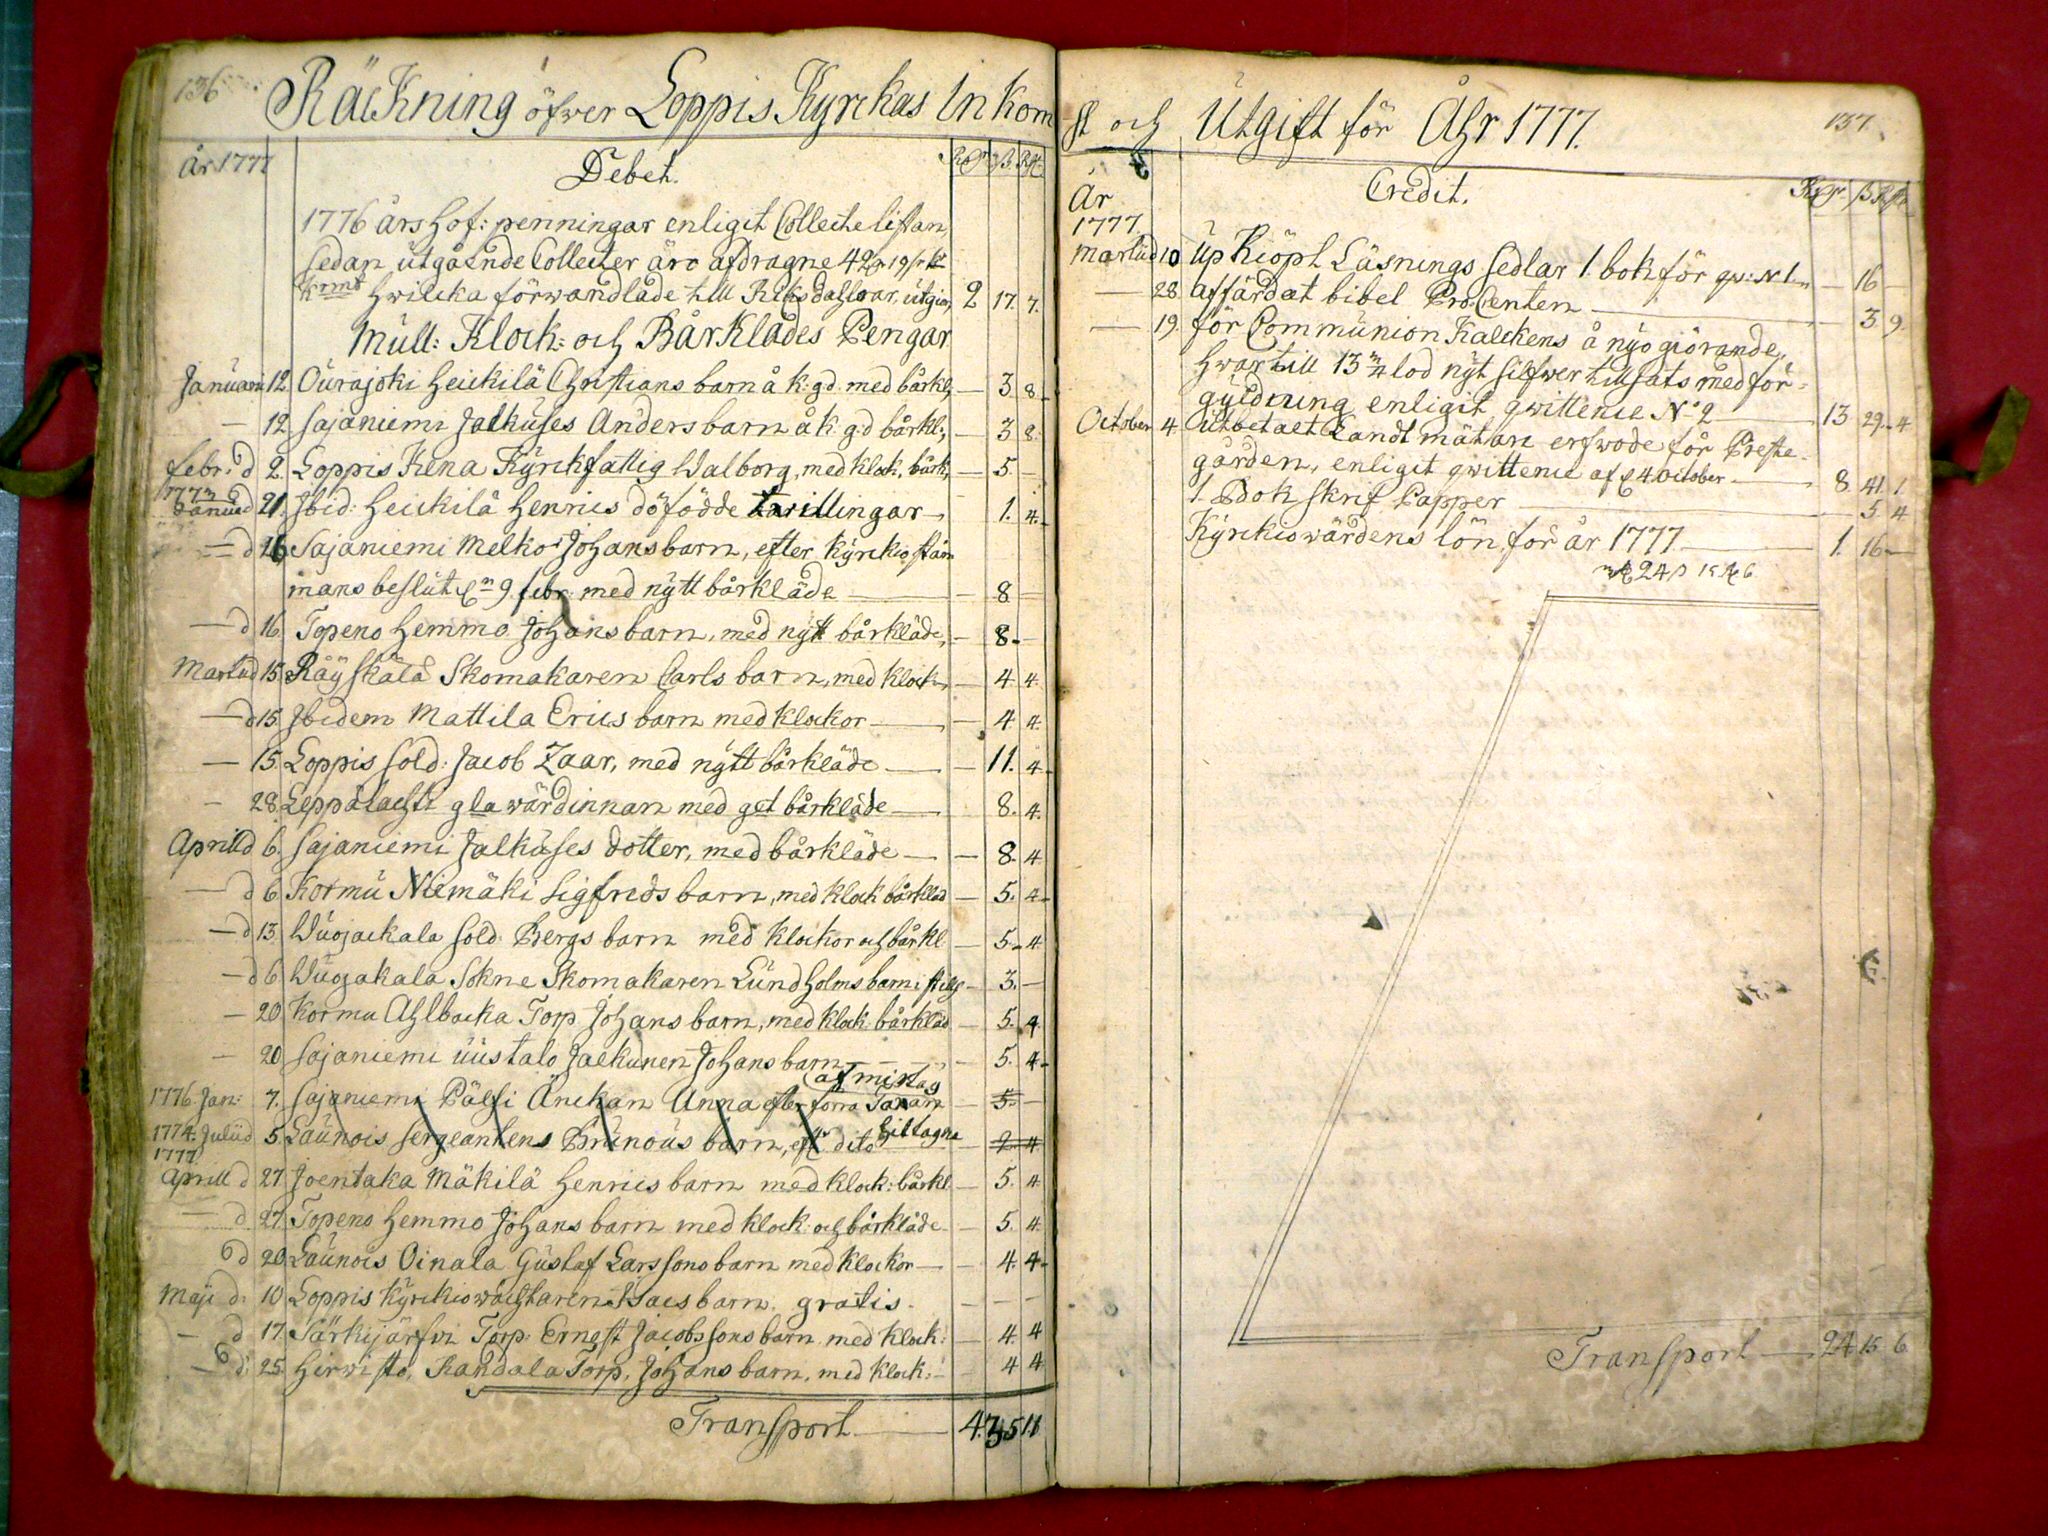 136
Räckning öfwer Loppis Kyrckas Inkom
År 1777
Debet.
1776 års hof: penningar enligit Collecte listan,
sedan utgående Collecter äro afdragne
hwilcka förwandlade till Riksdahlar, utgiör 2 17. 7.
Mull: Klock: och Bårklädes Pengar
Januarii 12. Ourajoki Heickilä Christians barn å k: gd med bårkl, — 3 8
— 12 Sajaniemi Jalkuses Anders barn å k: gd bårkl:, — 3 8.
Febr: d 2. Loppis Kena Kyrckfattig Walborg, med klock, bårk, — 5. —
1777 Januar d 21. Ibid: Heickilä Henrics döfödde trillingar — 1. 4.
— d 26 Sajaniemi Melko Johans barn, efter Kyrckio stäm
mans beslut 9 febr: med nytt bårkläde — — 8 —
— d 16. Topeno Hemmo Johans barn, med nytt bårkläde, — 8. —
Martii d 15. Räyskälä Skomakaren Carls barn, med klock, — 4 4.
— d 15. Ibidem Mattila Erics barn med klockor — — 4 4.
— 15. Loppis Sold: Jacob Zaar, med nytt bårkläde — — 11. 4.
— 28. Leppälachti gla wärdinnan med get bårkläde — 8. 4.
Aprill d 6. Sajaniemi Jalkuses dotter, med bårkläde — — 8. 4
— d 6. Kormu Niemäki Sigfreds barn, med klock bårkläd — 5. 4.
— d 13. Wuojackala Sold: Bergs barn med klockor och bårkl — 5. 4.
— d 6 Wuojakala Sokne Skomakaren Lundholms barn i — 3. —
— 20 Kormu Ahlbacka Torp Johans barn, med klock bårkläd — 5. 4
— 20. Sajaniemi Uustalo Jaekunen Johans barn — — 5. 4.
af min
1776 Jan: 7. Sajaniemi Pälsi Änckan Anna efter förra Taxan — 5. —
1774. Julii d 5. Launois Sergeantens Brunous barn, eft dito — 2 4
1777
Aprill d 27. Joentaka Mäkilä Henrics barn med klock: bårkl — 5. 4
— d. 27. Topeno Hemmo Johans barn med klock: och bårkläde — 5. 4.
d 20. Launois Oinala Gustaf Larssons barn med klockor — — 4. 4.
Maji d: 10 Loppis Kyrckiowächtaren Isacs barn, gratis. — — —
— d 17. Särkijärfvi Torp: Ernest Jacobssons barn med klock: — 4. 4
— d: 25. Hirwisto, Randala Torp, Johans barn, med klock: — 4 4
Transport — 4. 35 11
st och Utgift för Åhr 1777. 137.
År
1777.
Credit.
Martii d 10 Up Kiöpt Läsnings Sedlar 1. bok för — 16 —
— 28. affärdat bibel Pro Centen — — 3. 9.
— 19. för Communion Kalckens å nyo giörande,
hwartill 13 3/4 lod nyt silfwer tillsats med för-
gyldning enligit qwittence No 2 — 13 29. 4
October 4. Utbetalt Landtmätare arfwode för Preste
gården, enligit qwittence af d 4 October — 8. 41. 1.
1. Bok skrif Papper — — 5 4
Kyrckiowärdens lön för år 1777 — 1. 16 —
24 15 6
Transport — 24 15 6